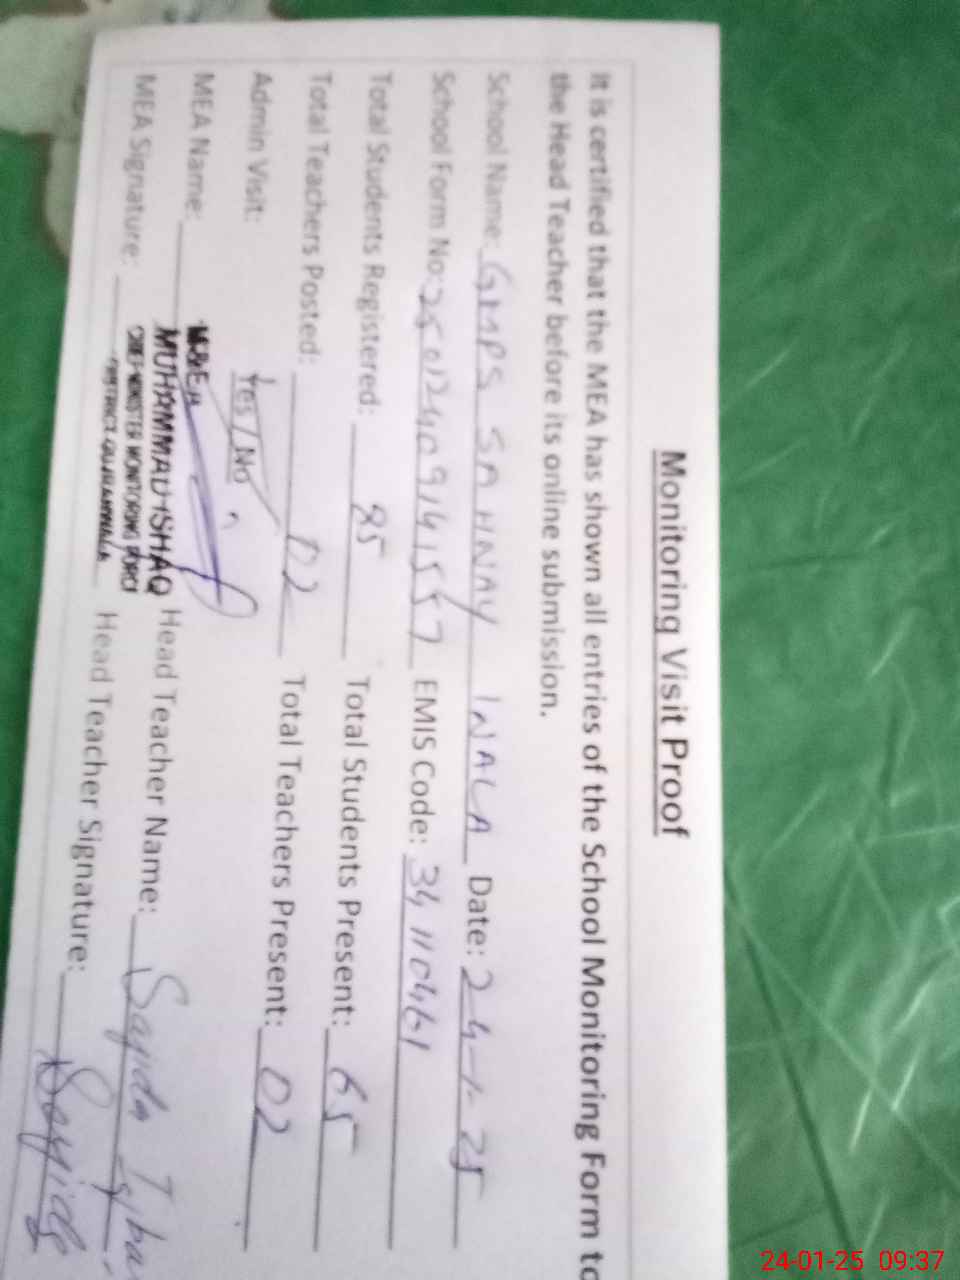 Monitoring Visit Proof
It is certified that the MEA has shown all entries of the School Monitoring Form to
the Head Teacher before its online submission.
School Name: GMPS SAHNAY INALA Date: 24-1-25
School Form No: 25012409141557 EMIS Code: 34110461
Total Students Registered: 85 Total Students Present: 65
Total Teachers Posted: 02 Total Teachers Present: 02
Admin Visit: Yes / No
MEA Name: MUHAMMAD ISHAQ Head Teacher Name: Sayida
MEA Signature: Head Teacher Signature: Sayida
M&EA
CHIEF MINISTER MONITORING FORCE
DISTRICT GUJRANWALA
24-01-25 09:37